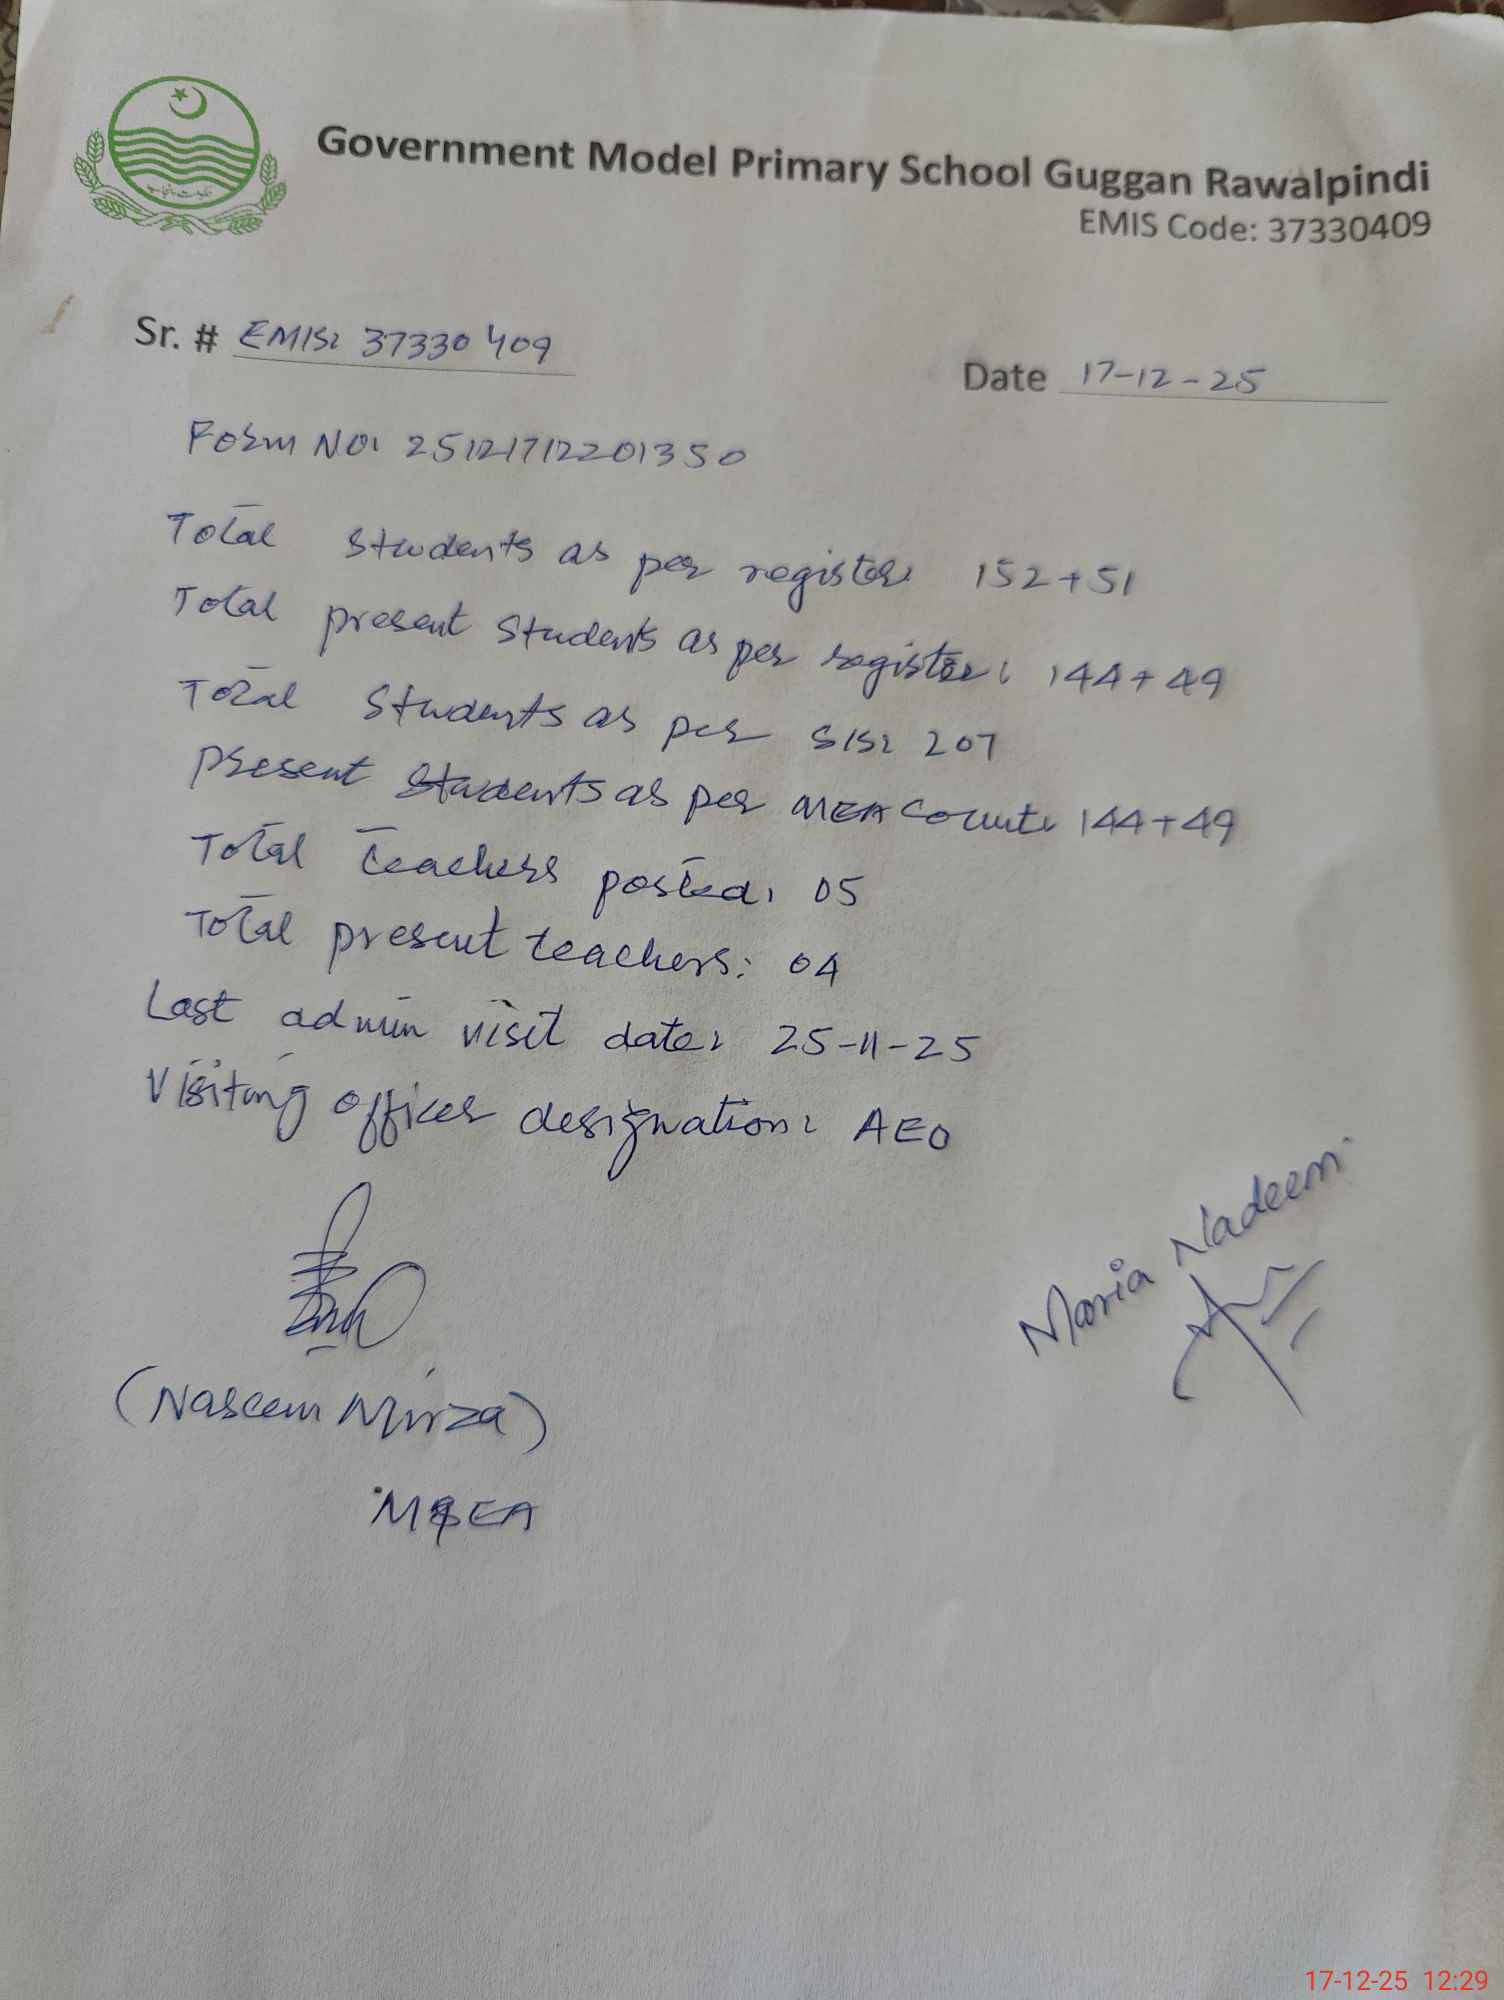 Government Model Primary School Guggan Rawalpindi
EMIS Code: 37330409
Sr. # EMIS: 37330409
Date 17-12-25
Form No: 251217122201350
Total students as per register: 152+51
Total present students as per register: 144+49
Total students as per SIS: 207
Present Students as per MEA Count: 144+49
Total teachers posted: 05
Total present teachers: 04
Last admin visit date: 25-11-25
Visiting officer designation: AEO
Maria Nadeem
(Naseem Mirza)
MEA
17-12-25 12:29